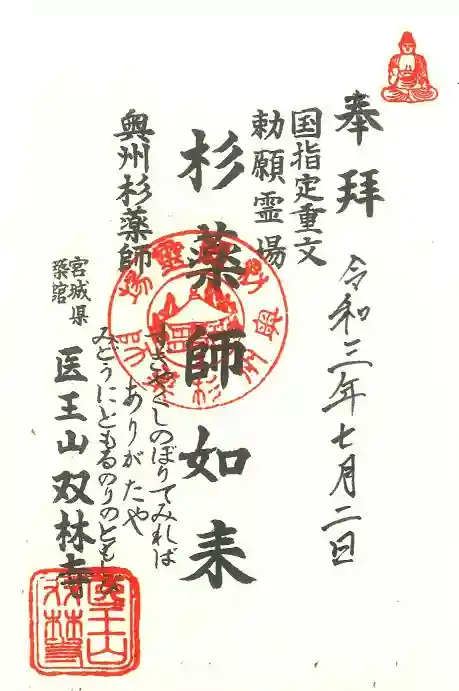 奉拝
令和三年七月二日
国指定重文
勅願霊場
杉薬師如来
奥州杉薬師
すぎやくしのぼりてみれば
ありがたや
みどうにともるのりのともしび
宮城県
築舘
医王山双林寺
医王山
双林寺